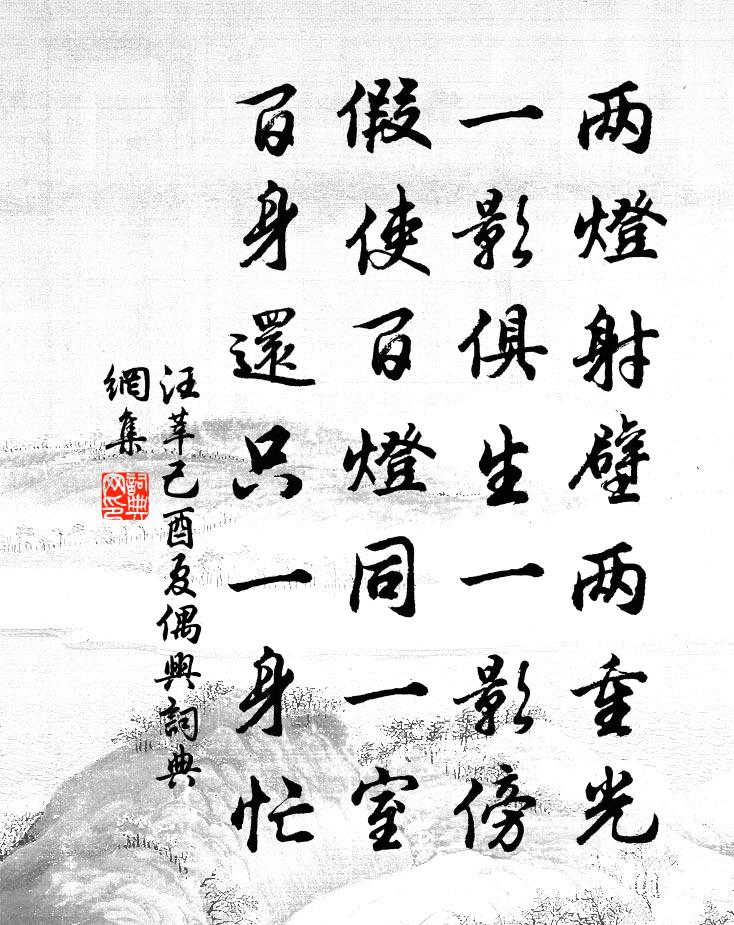 两燈射壁两重光
一影俱生一影傍
假使百燈同一室
百身還只一身忙
汪莘己酉夏偶興詞典
網集
詞典網印